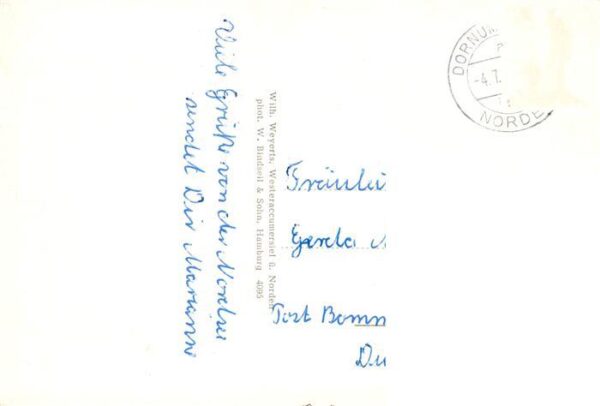 Viele Grüße von der Nordsee
sendet Dir Marianne
Wilh. Weyerts, Westeraccumersiel ü. Norden
phot. W. Bindseil & Sohn, Hamburg 4095
DORNUM
-4.7.
NORDE
Fräulei
Gerda